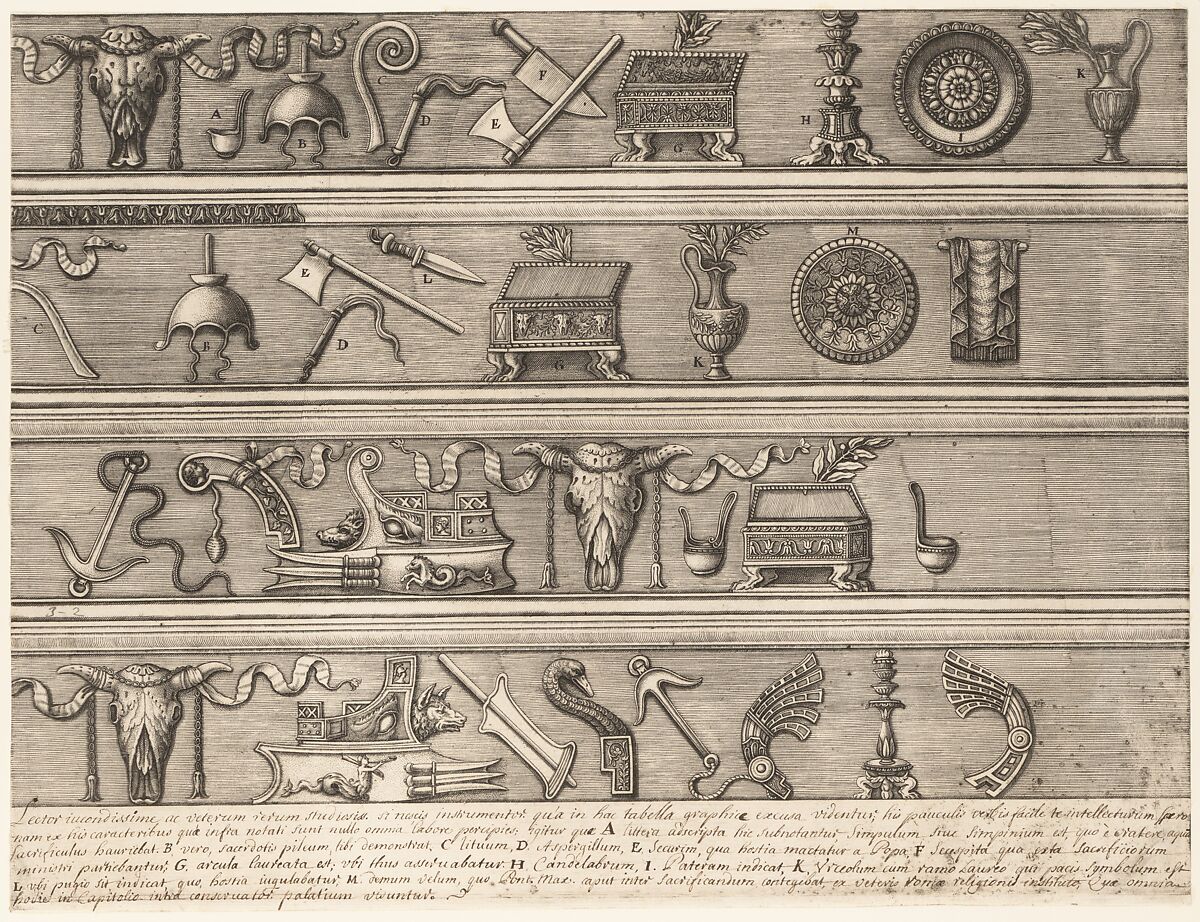 A
B
C
D
E
F
G
H
I
K
C
B
E
D
L
G
K
M
3-2
Lector iucondissime, ac veterum rerum studiosis. si nescis instrumentos quæ in hac tabella graphice excusa videntur, his pauculis verbis facile te intellecturum, spero
nam ex his caracteribus qua infra notati sunt nullo omnia labore percipies, igitur quæ A littera adscripta hic subnotantur Simpulum siue Simpinium est, quo e cratere
sacrificulus hauriebat. B vero, sacerdotis pileum, tibi demonstrat, C lituum, D. Aspergillum, E Securim, qua hostia mactatur a Popa, F Secuspita qua exta Sacrificiorum
ministri partiebantur, G arcula laureata est, vbi thus asseruabatur, H. Candelabrum, I. Pateram indicat, K. Vrceolum cum ramo laureo qui pacis symbolum est
L vbi pugio sit indicat, quo, hostia iugulabatur, M. demum velum, quo, Pont. Max. caput inter Sacrificandum contegebat ex veteris romæ religionis instituto, Quæ omnia
hodie in Capitolio intra conseruatos palatium visuntur.